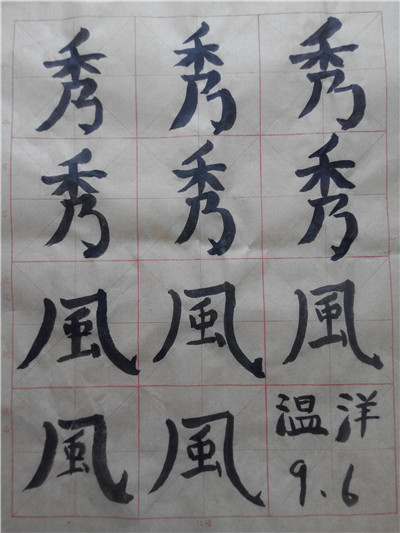 秀秀秀
秀秀秀
風風風
風風温洋
9.6